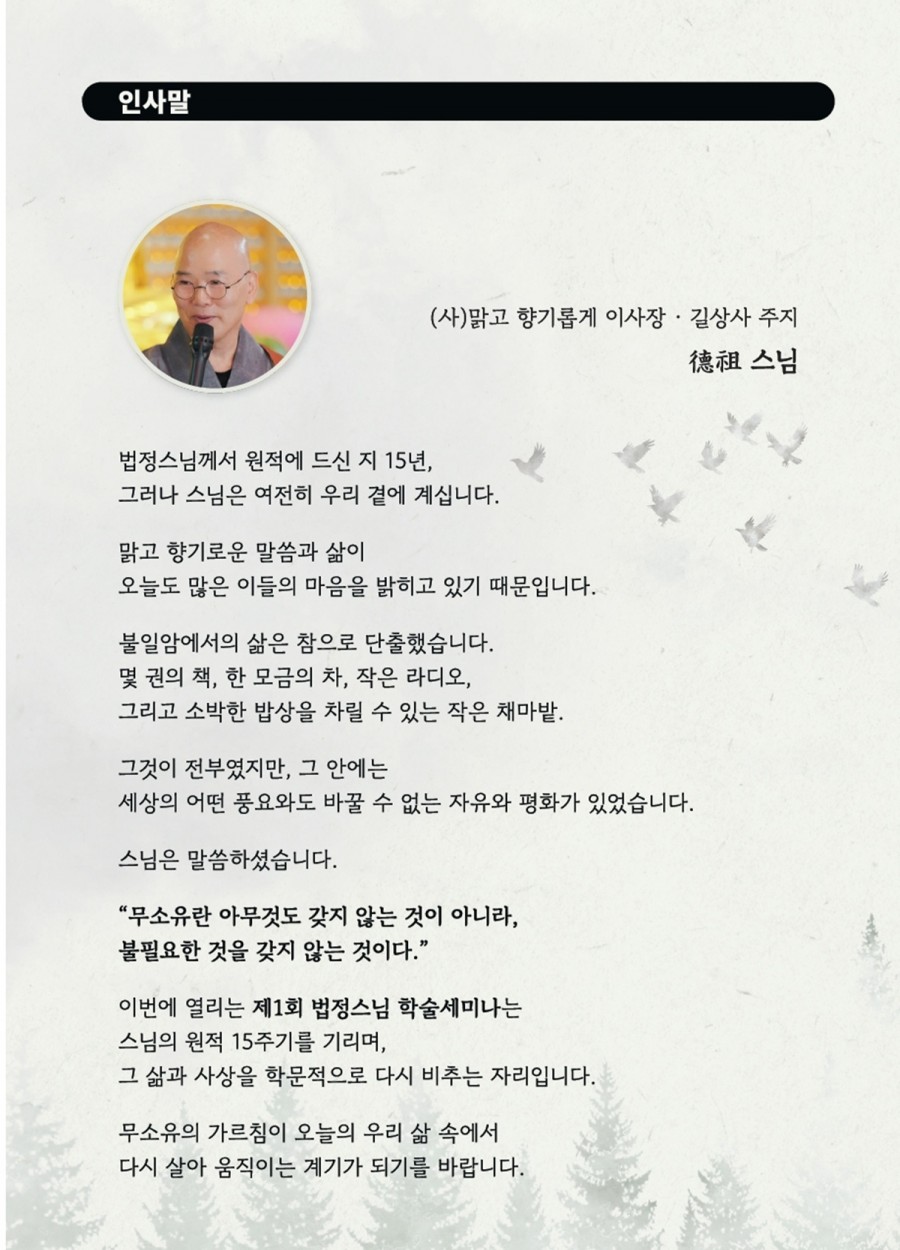 인사말
(사)맑고 향기롭게 이사장 · 길상사 주지
德祖 스님
법정스님께서 원적에 드신 지 15년,
그러나 스님은 여전히 우리 곁에 계십니다.
맑고 향기로운 말씀과 삶이
오늘도 많은 이들의 마음을 밝히고 있기 때문입니다.
불일암에서의 삶은 참으로 단출했습니다.
몇 권의 책, 한 모금의 차, 작은 라디오,
그리고 소박한 밥상을 차릴 수 있는 작은 채마밭.
그것이 전부였지만, 그 안에는
세상의 어떤 풍요와도 바꿀 수 없는 자유와 평화가 있었습니다.
스님은 말씀하셨습니다.
“무소유란 아무것도 갖지 않는 것이 아니라,
불필요한 것을 갖지 않는 것이다.”
이번에 열리는 제1회 법정스님 학술세미나는
스님의 원적 15주기를 기리며,
그 삶과 사상을 학문적으로 다시 비추는 자리입니다.
무소유의 가르침이 오늘의 우리 삶 속에서
다시 살아 움직이는 계기가 되기를 바랍니다.